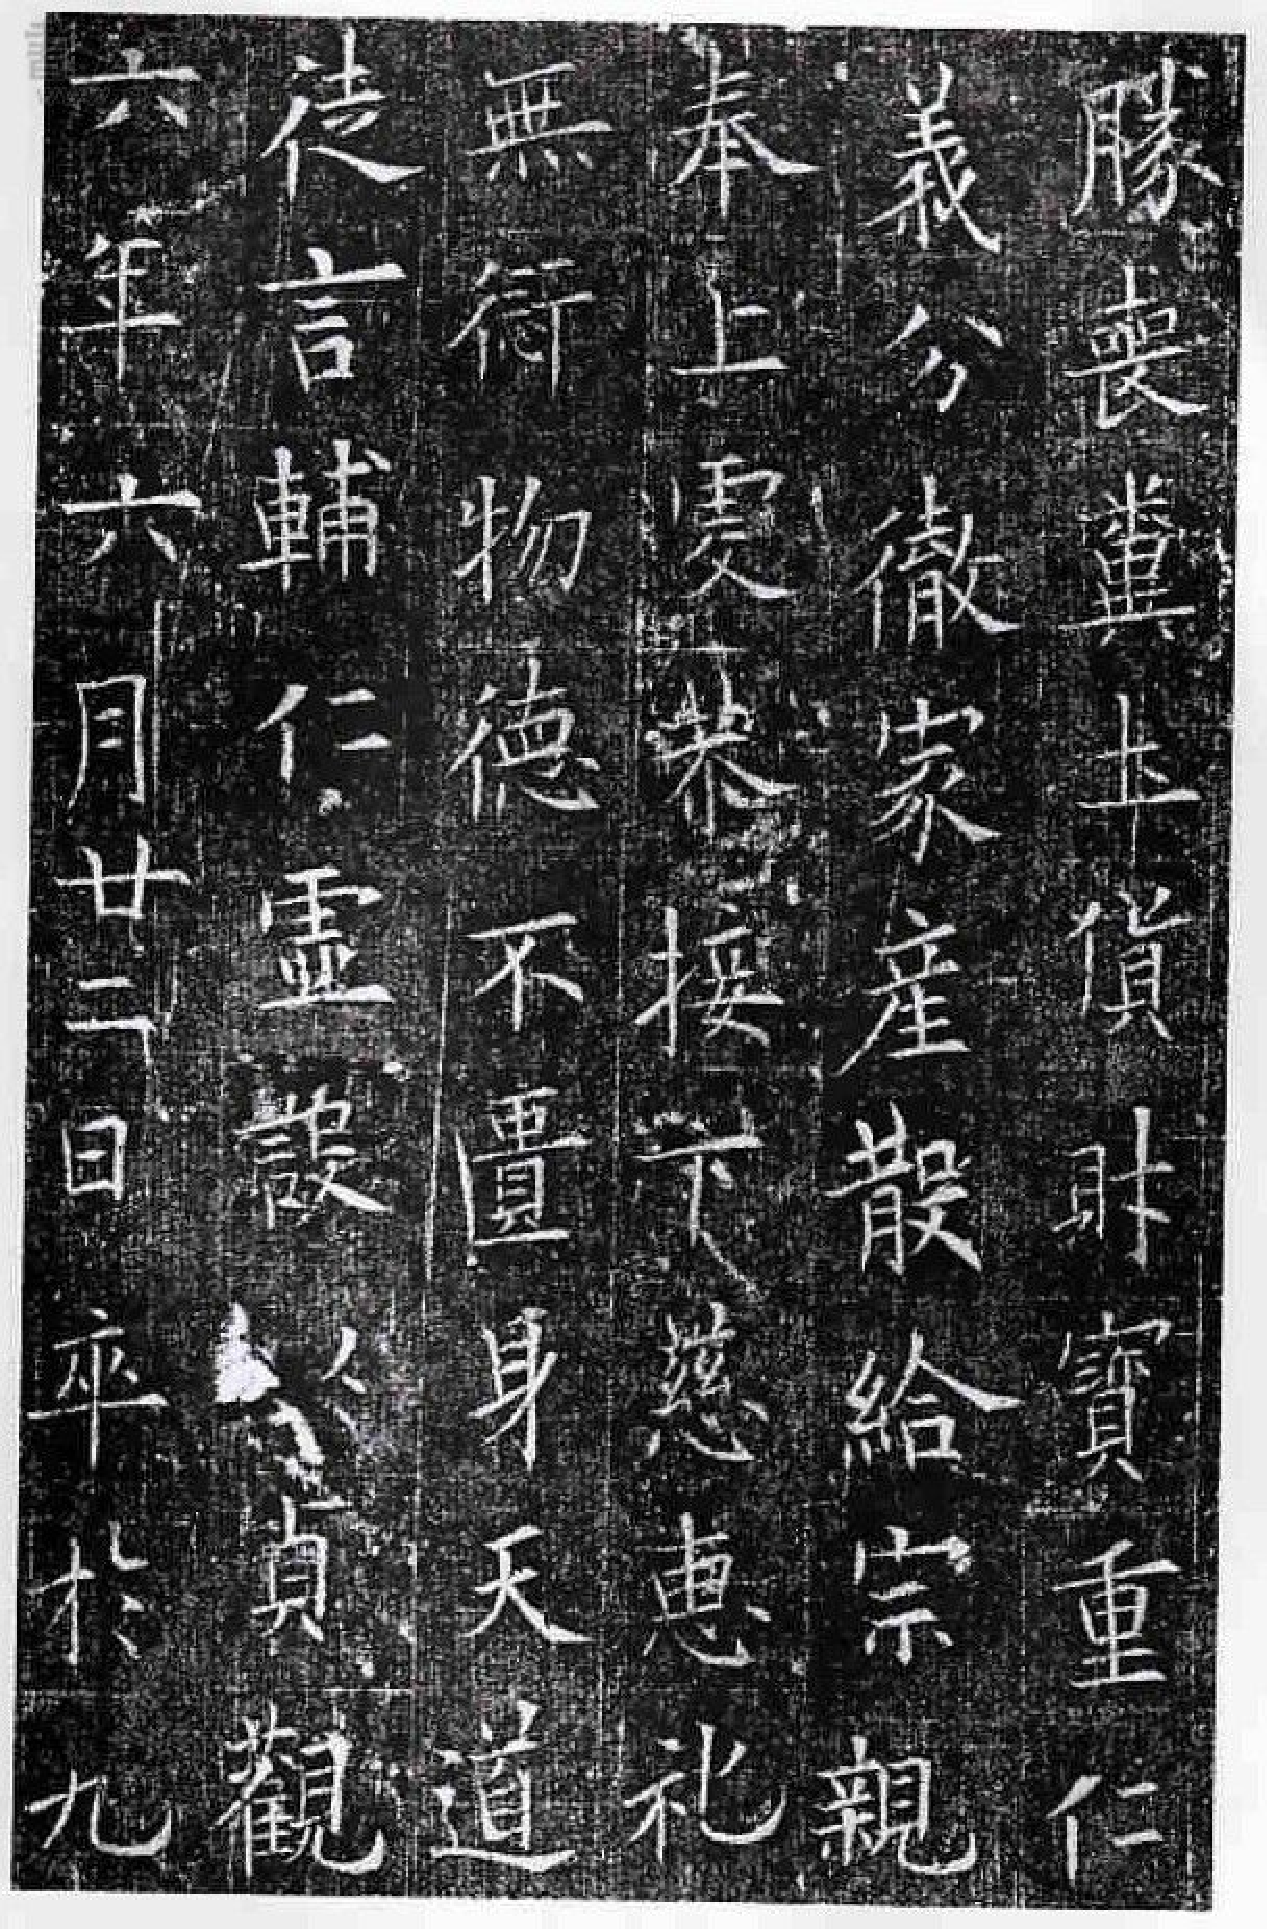 勝喪糞土貨財寶重仁
義分徹家産散給宗親
奉上虔恭接下慈恵礼
無愆物德不匱身天道
徒言輔仁虛設以貞觀
六年六月廿二日卒於九